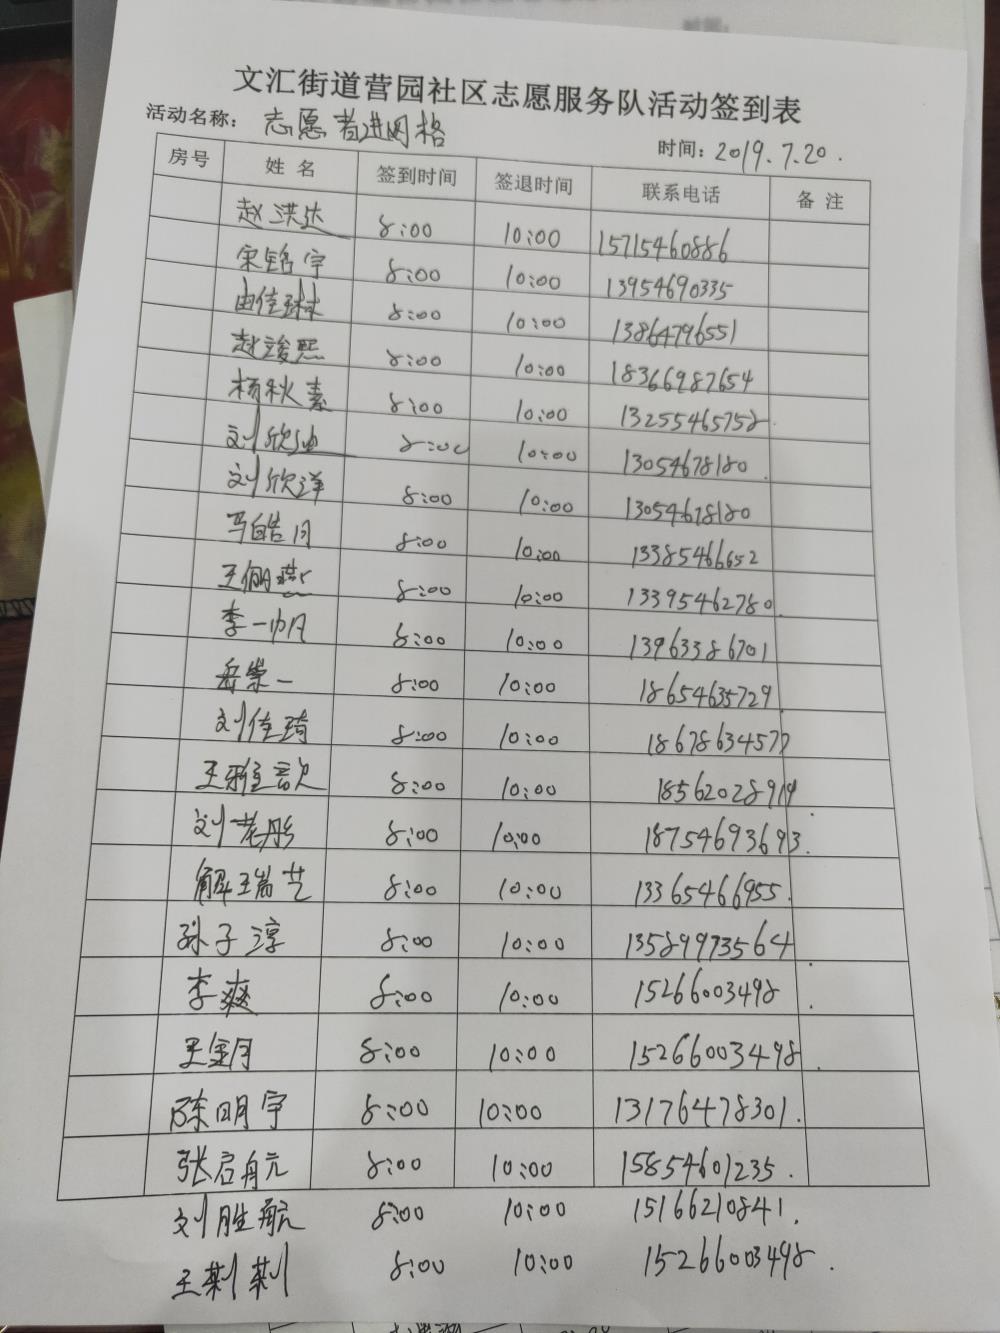 文汇街道营园社区志愿服务队活动签到表
活动名称： 志愿者进网格 时间：2019.7.20.
房号 姓名 签到时间 签退时间 联系电话 备注
赵洪达 8:00 10:00 15715460886
宋铭宇 8:00 10:00 13954690335
由佳琳 8:00 10:00 13864796551
赵竣熙 8:00 10:00 18366987654
杨秋素 8:00 10:00 13255465758
刘欣 8:00 10:00 13054678180
刘欣洋 8:00 10:00 13054678180
马皓月 8:00 10:00 13385466652
王 8:00 10:00 13395462780
李一帆 8:00 10:00 13963386701
岳崇一 8:00 10:00 18654635729
刘佳琦 8:00 10:00 18678634577
王雅 8:00 10:00 18562028919
刘 彤 8:00 10:00 18754693693.
解瑞艺 8:00 10:00 13365466955.
孙子淳 8:00 10:00 13589973564
李爽 8:00 10:00 15266003498
王 月 8:00 10:00 15266003498
陈明宇 8:00 10:00 13176478301.
张启 元 8:00 10:00 15854601235.
刘胜航 8:00 10:00 15166210841.
王 8:00 10:00 15266003498.